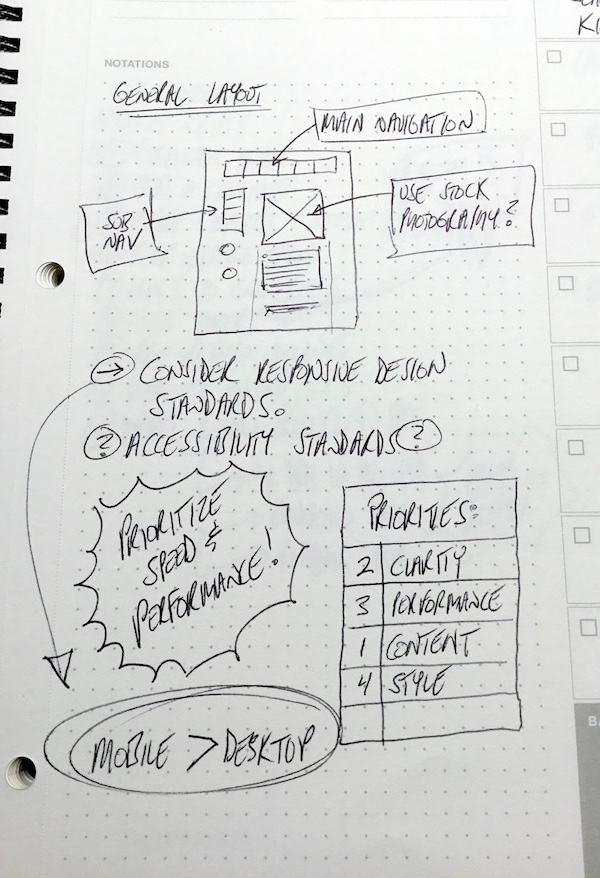 NOTATIONS
GENERAL LAYOUT
MAIN NAVIGATION
SUB
NAV
USE STOCK
PHOTOGRAPHY?
→ CONSIDER RESPONSIVE DESIGN
STANDARDS.
? ACCESSIBILITY STANDARDS ?
PRIORITIZE
SPEED &
PERFORMANCE!
PRIORITIES:
2 CLARITY
3 PERFORMANCE
1 CONTENT
4 STYLE
MOBILE > DESKTOP